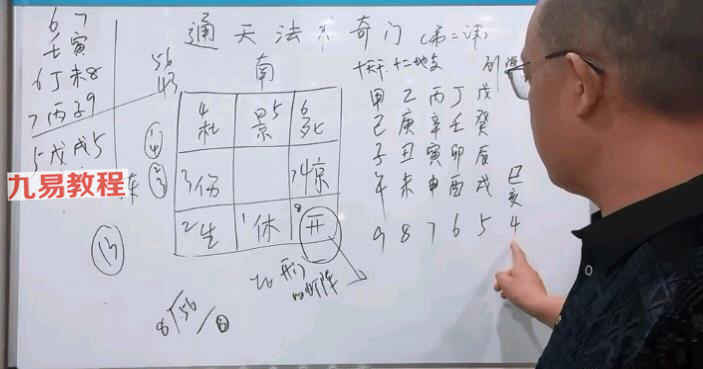 通天法 奇门(第二讲)
南
十天干 十二地支
6 7
壬寅
6丁未8
7丙子9
5戊戌5
56
43
4杜 景5 6死
3伤 7惊
2生 1休 8开
甲乙丙丁戊
己庚辛壬癸
子丑寅卯辰巳
午未申酉戌亥
9 8 7 6 5 4
13
开门
8 56 / 8
九易教程